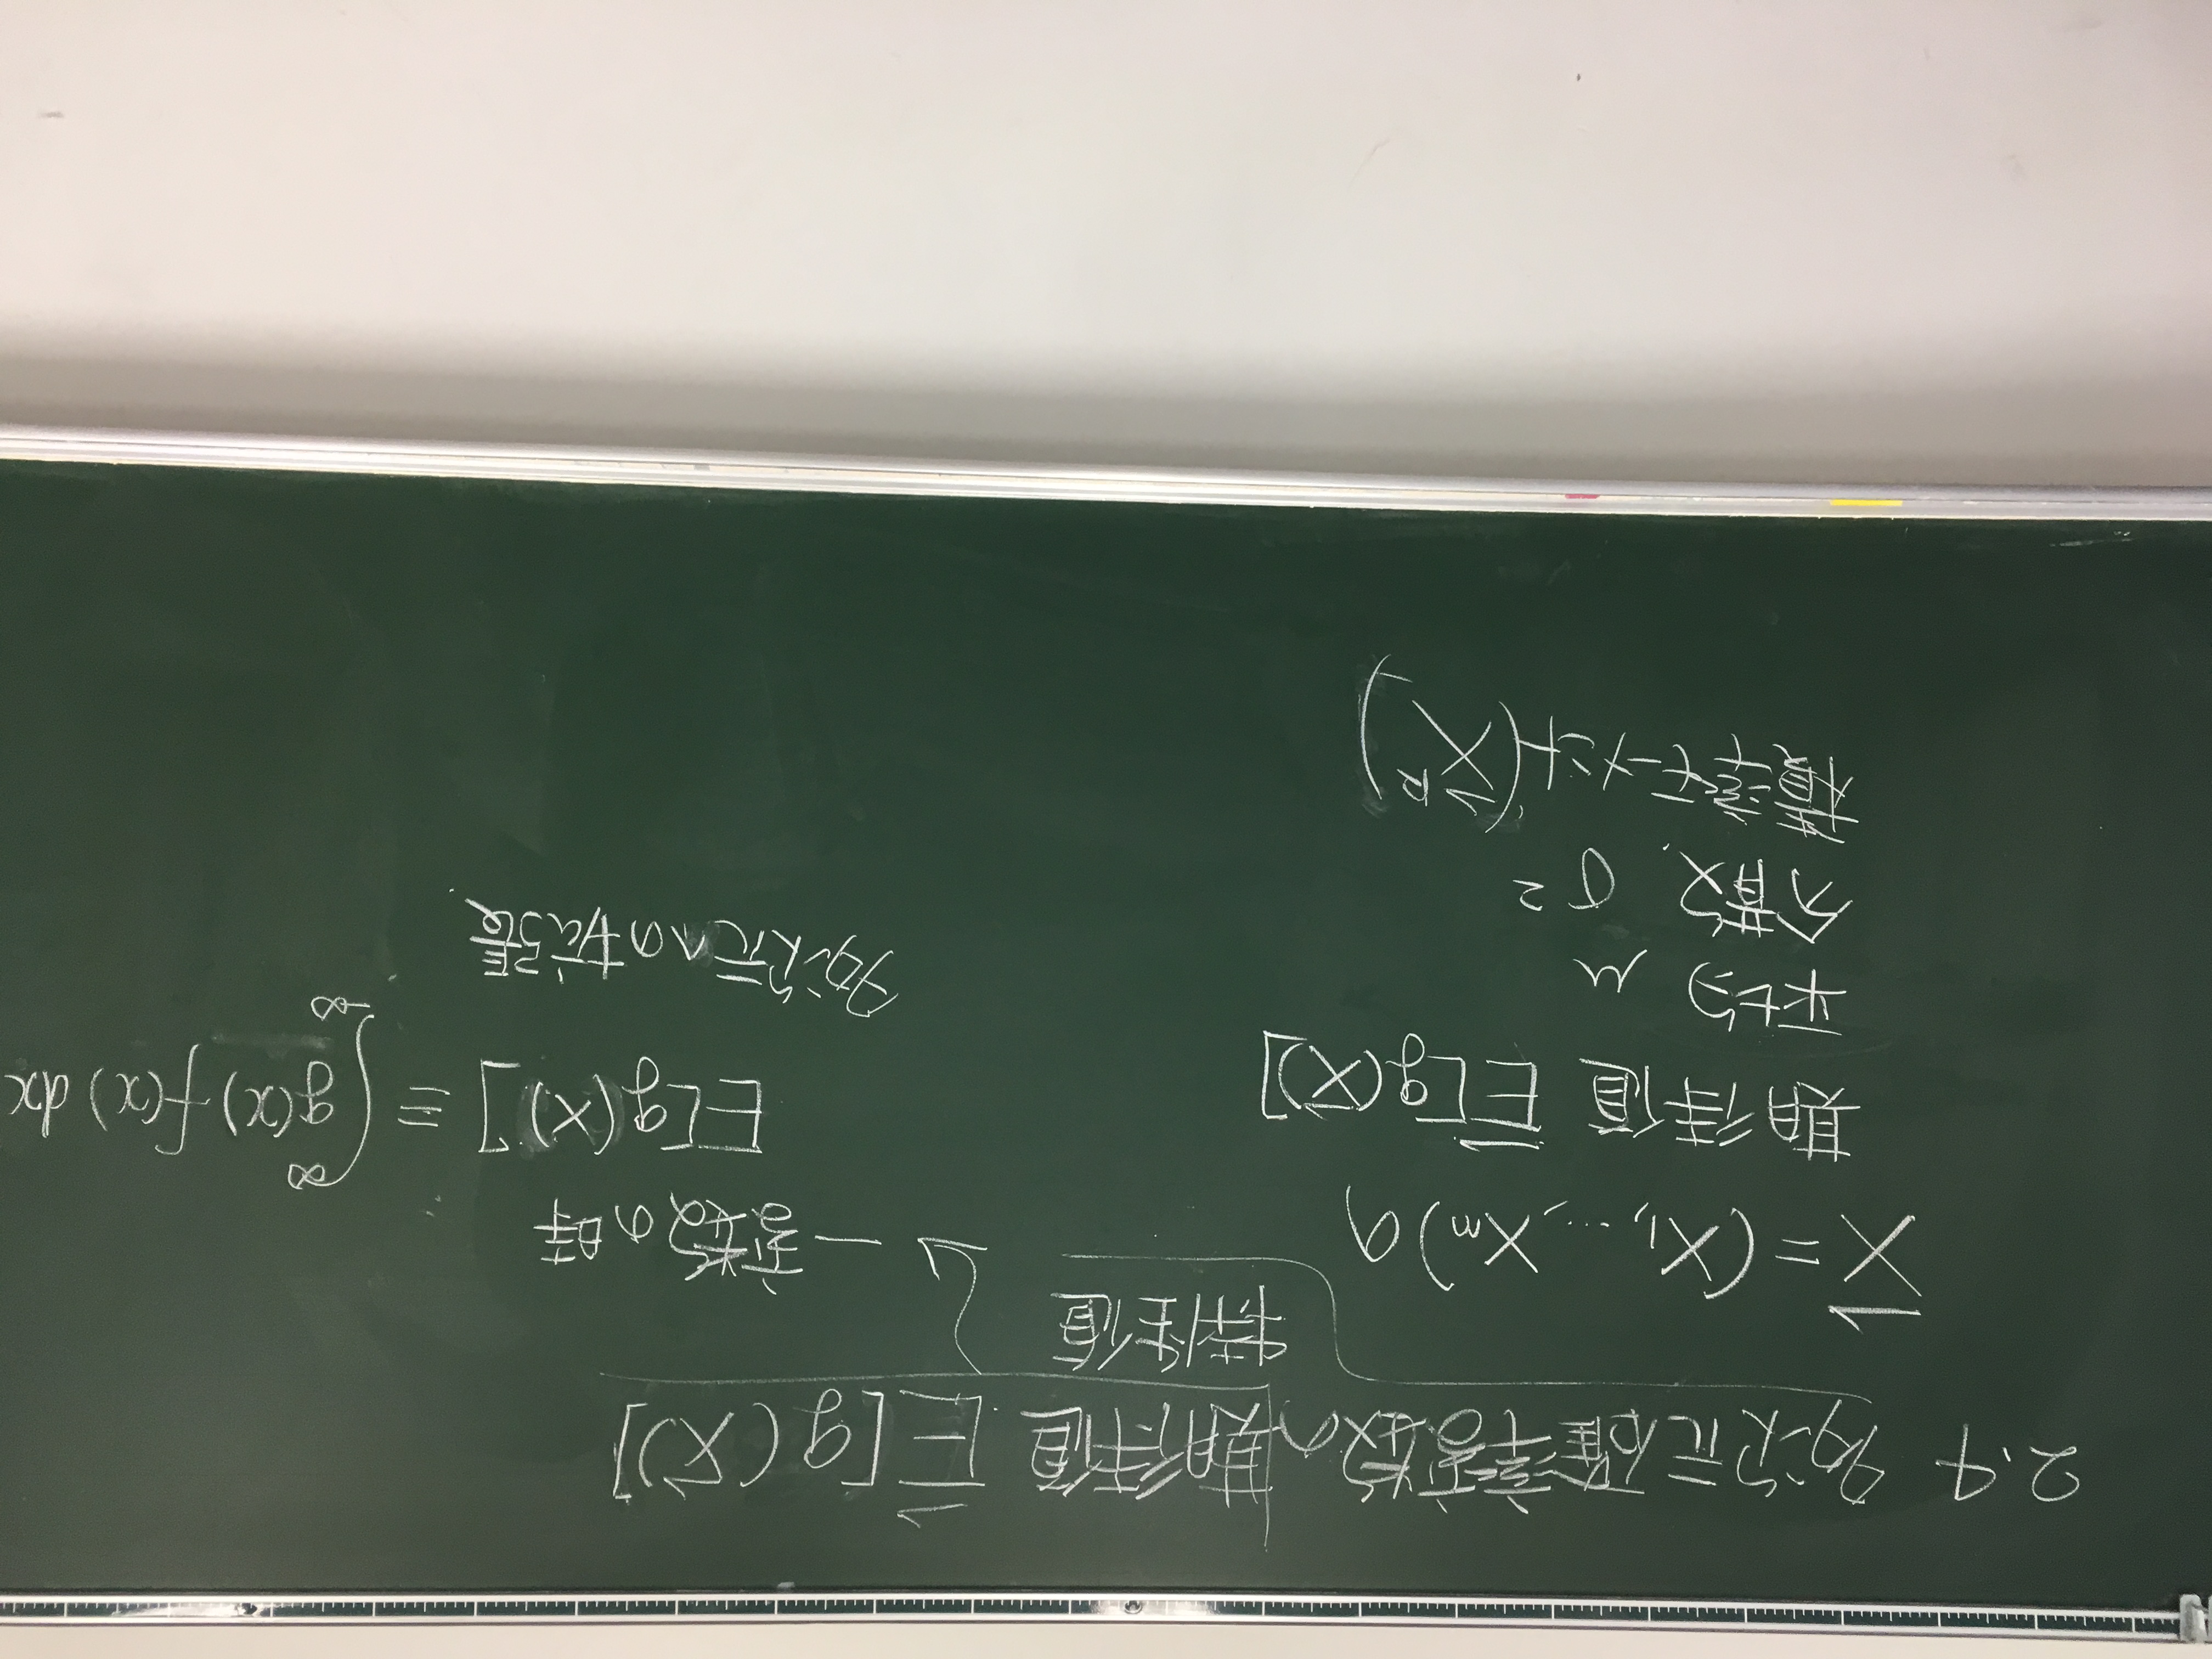 2.4 多次元確率変数の期待値 E⃗[g(X⃗)]
特性値
X⃗ = (X₁, ..., Xₘ) の
期待値 E⃗[g(X⃗)]
平均 μ
分散. σ²
積率モーメント(X⃗ᵏ)
一変数の時
E[g(X)] ≡ ∫_{-∞}^{∞} g(x) f(x) dx
多次元への拡張.